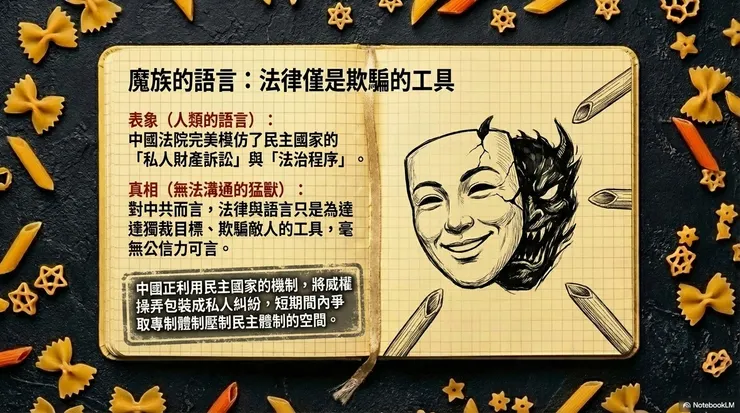 魔族的語言：法律僅是欺騙的工具
表象（人類的語言）：
中國法院完美模仿了民主國家的
「私人財產訴訟」與「法治程序」。
真相（無法溝通的猛獸）：
對中共而言，法律與語言只是為達
達獨裁目標、欺騙敵人的工具，毫
無公信力可言。
中國正利用民主國家的機制，將威權
操弄包裝成私人糾紛，短期間內爭
取專制體制壓制民主體制的空間。
NotebookLM